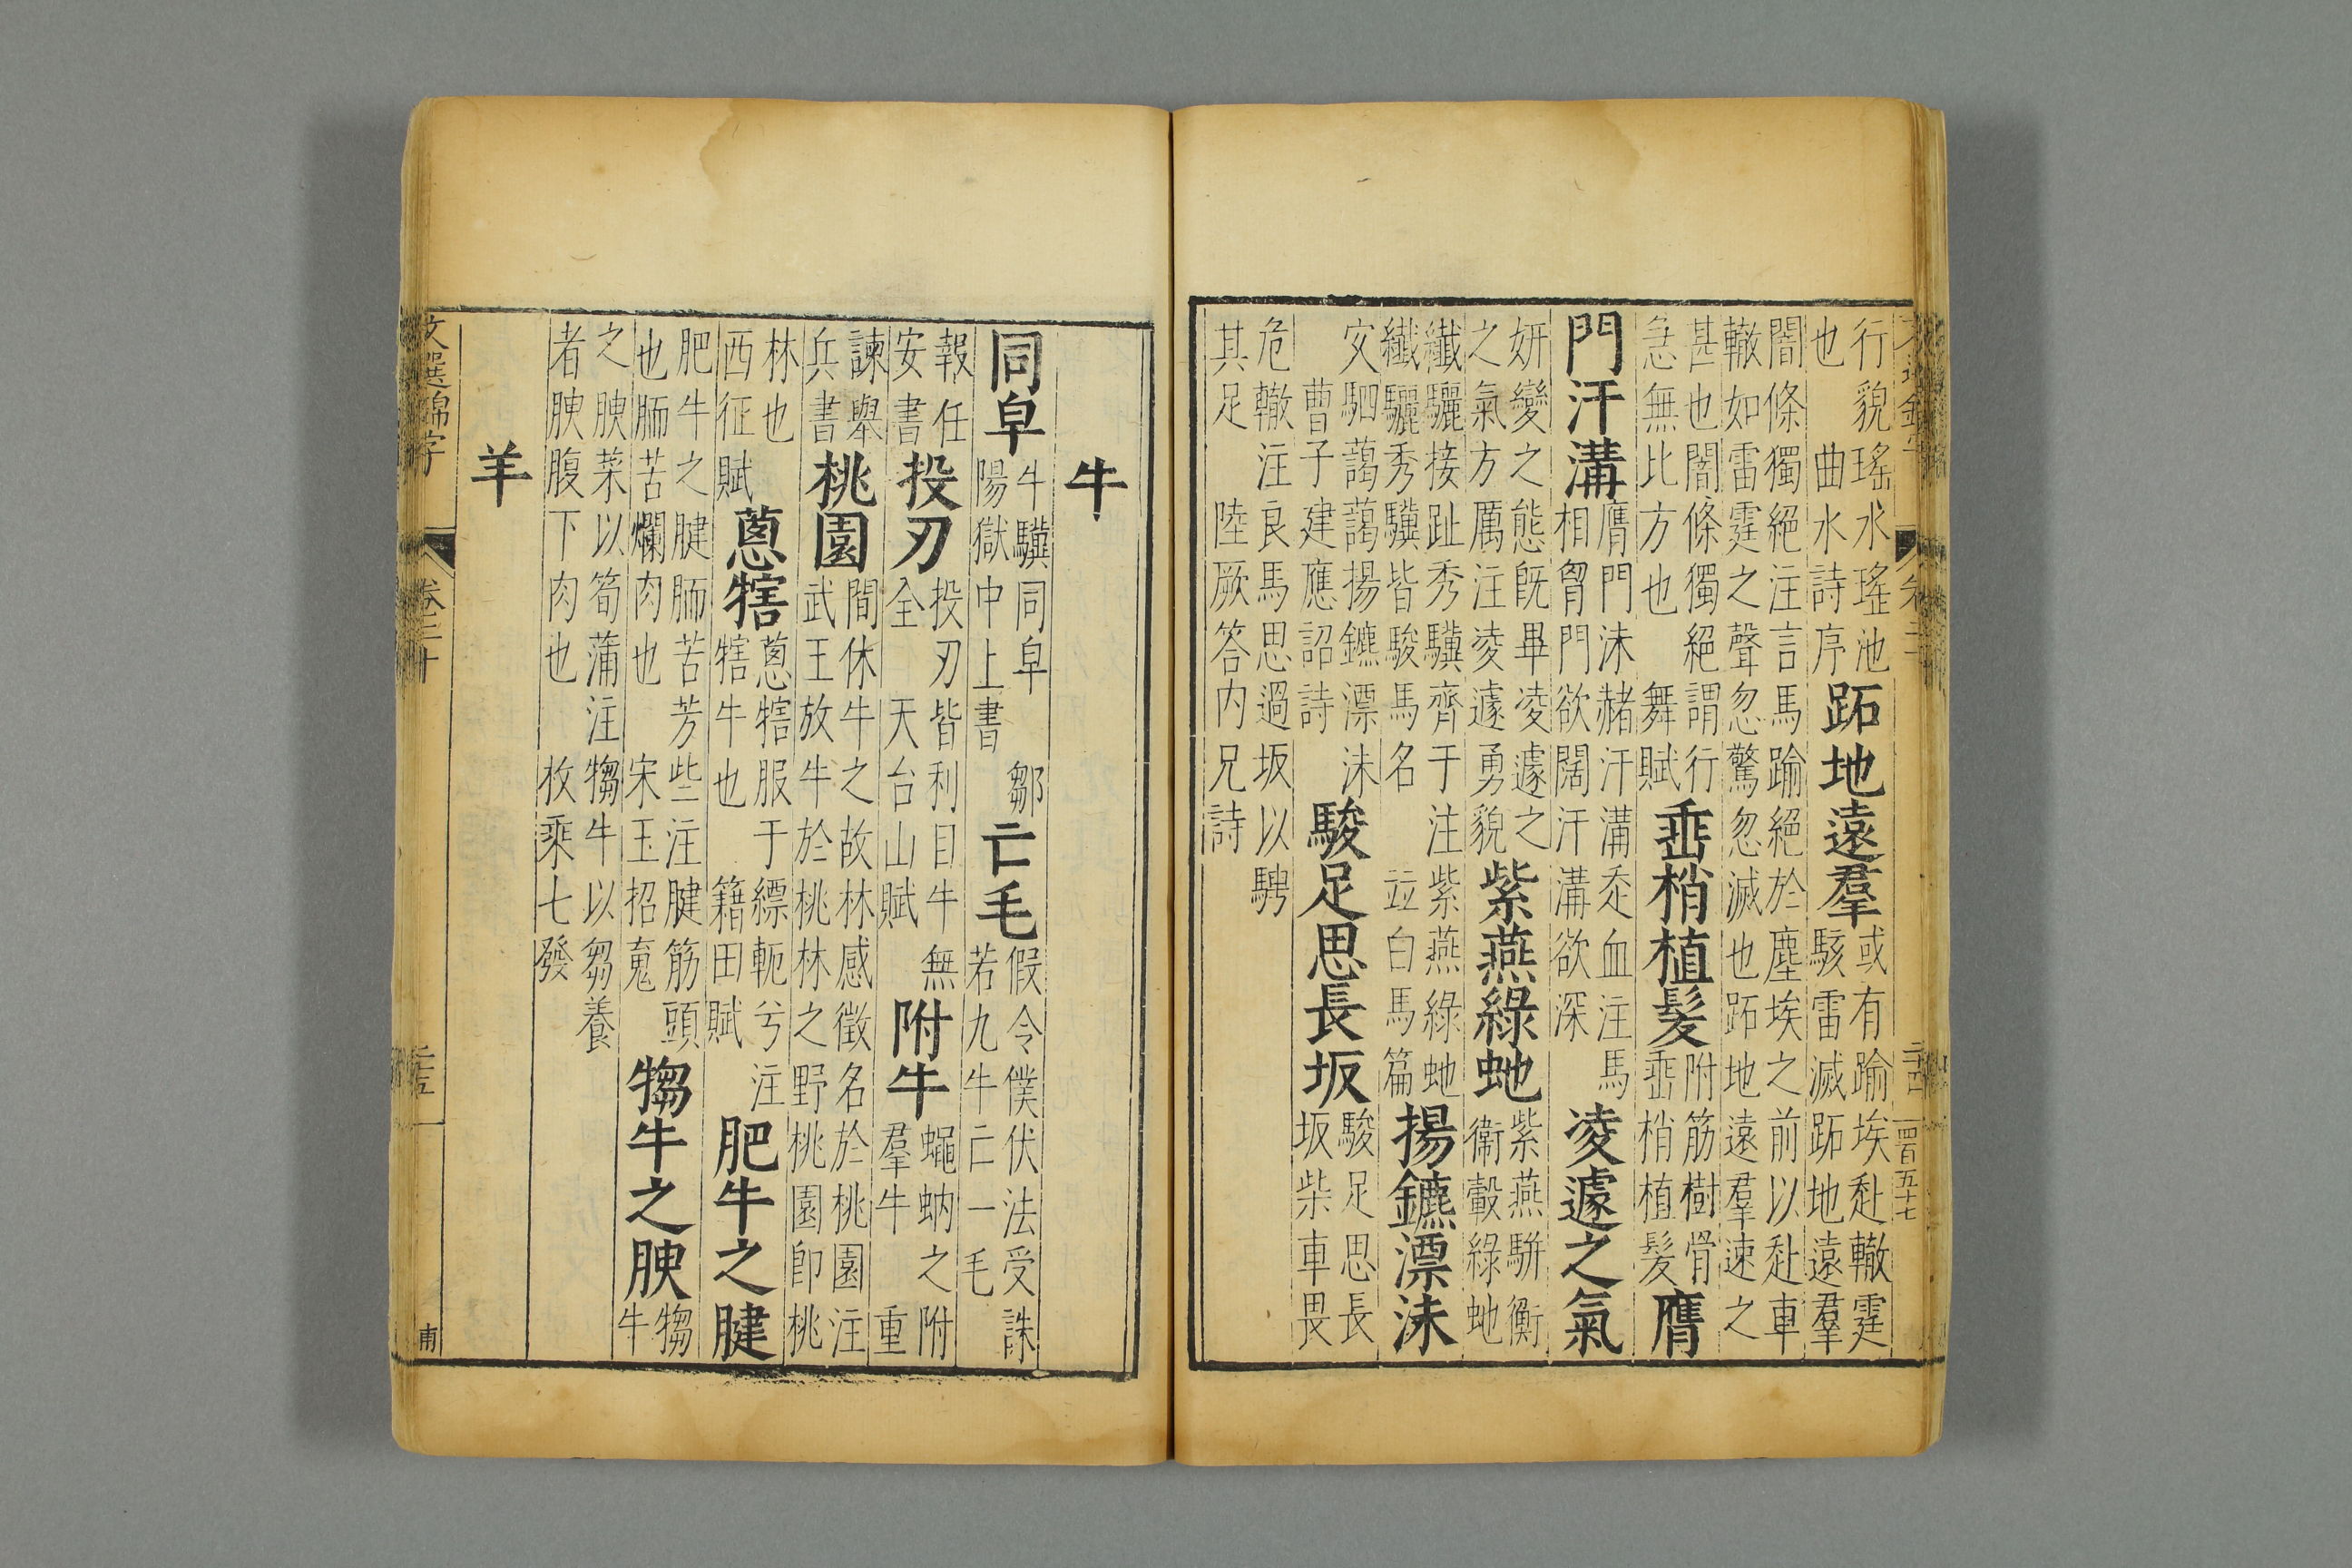 行貌瑤水瑤池也曲水詩序跖地遠羣或有踰埃赴轍霆駭雷滅跖地遠羣
闇條獨絕注言馬踰絕於塵埃之前以赴車轍如雷霆之聲忽驚忽滅也跖地遠羣速之
甚也闇條獨絕謂行急無比方也舞賦垂梢植髮附筋樹骨垂梢植髮膺
門汗溝膺門沬赭汗溝㳅血注馬相胷門欲闊汗溝欲深凌遽之氣
妍變之態旣畢凌遽之之氣方厲注凌遽勇貌紫燕綠虵紫燕駢衡衞轂綠虵
纖驪接趾秀騏齊于注紫燕綠虵纖驪秀騏皆駿馬名竝白馬篇揚鑣漂沬
駟藹藹揚鑣漂沬曹子建應詔詩駿足思長坂駿足思長坂柴車畏
危轍注良馬思過坂以騁其足陸厥答内兄詩
四百五十七
牛
同皁牛驥同皁鄒陽獄中上書亡毛假令僕伏法受誅若九牛亡一毛
報任安書投刃投刃皆利目牛無全天台山賦附牛蠅蚋之附羣牛重
諫舉兵書桃園間休牛之故林感徵名於桃園注武王放牛於桃林之野桃園卽桃
林也西征賦蔥犗蔥犗服于縹軛兮注犗牛也籍田賦肥牛之腱
肥牛之腱臑苦芳些注腱筋頭也臑苦爛肉也宋玉招䰟犓牛之腴犓牛
之腴菜以筍蒲注犓牛以芻養者腴腹下肉也枚乘七發
羊
文選錦字 卷二十 二十五